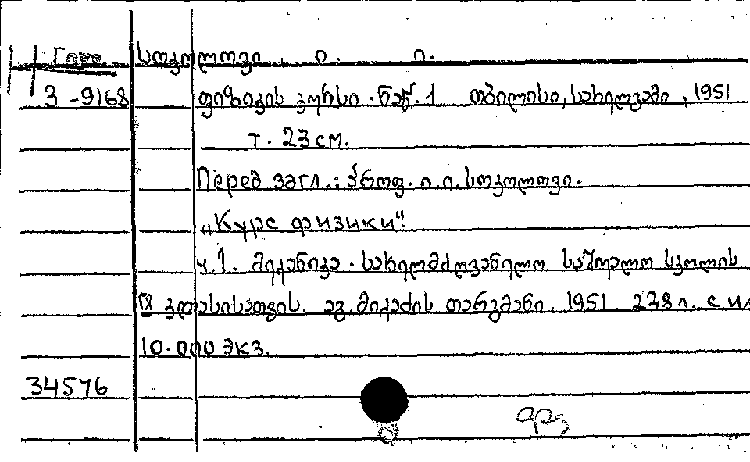 სოკოლოვი ი. ი.
3-9168 ფიზიკის კურსი. ნაწ. 1 თბილისი, სახელგამი, 1951
т. 23 см.
Перед загл.: პროფ. ი. ი. სოკოლოვი.
„Курс физики“.
ч. 1. მექანიკა. სახელმძღვანელო საშუალო სკოლის
VIII კლასისათვის. ავ. მიკაძის თარგმანი. 1951 238 с. ил
10.000 экз.
34576